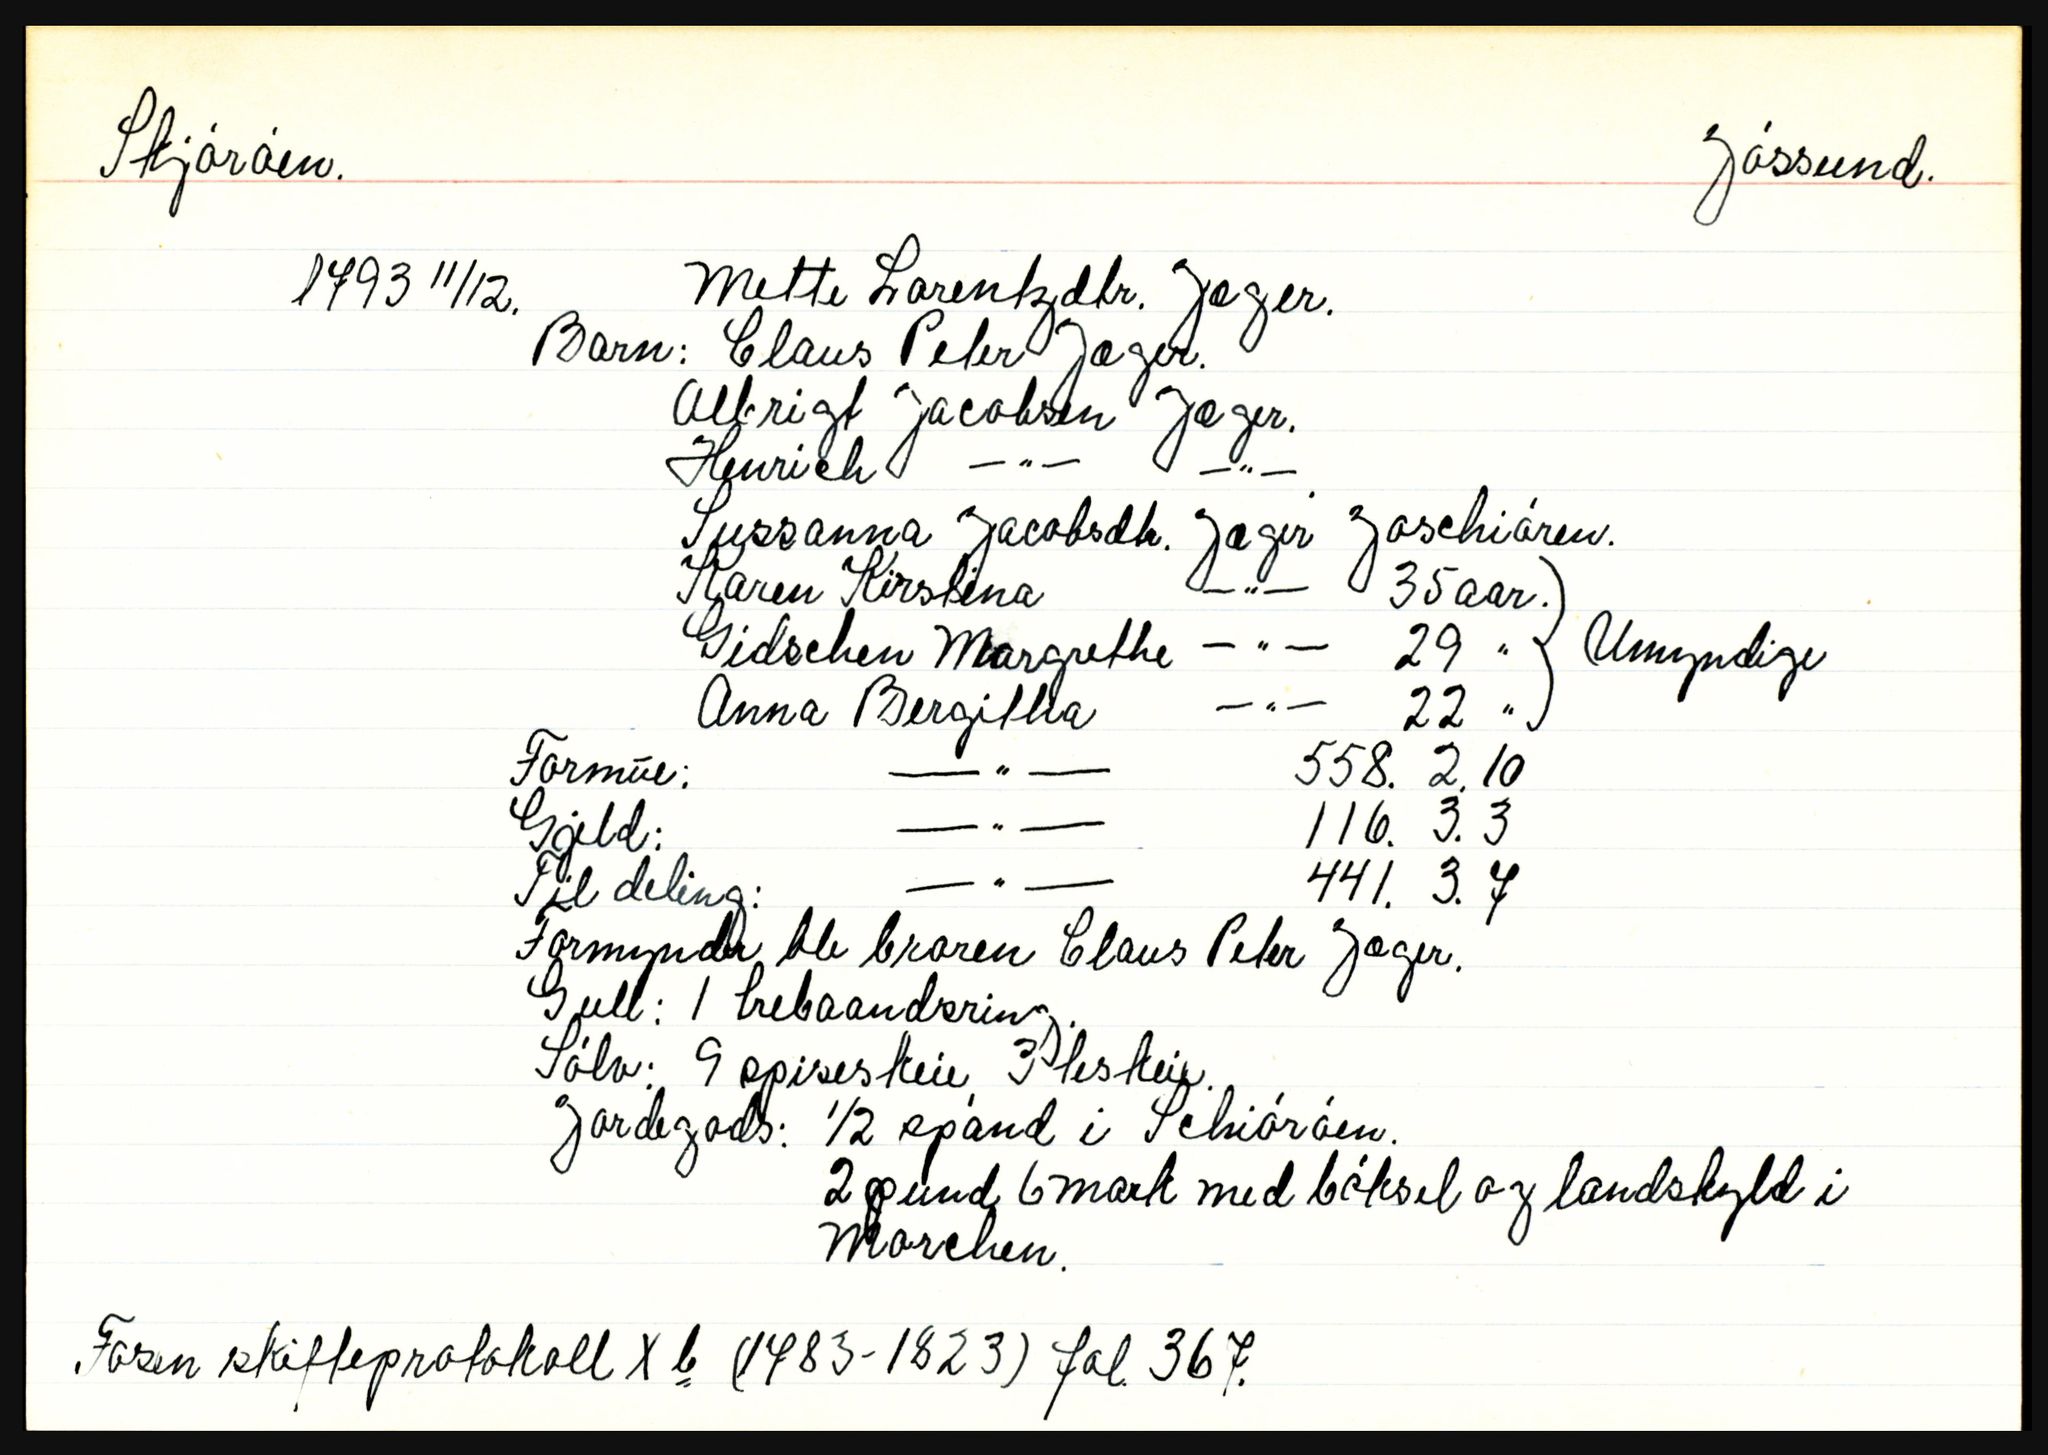 Skjöröen. Jössund.
1793 11/12. Mette Lorentzdtr. Jæger.
Barn: Claus Peter Jæger.
Albrigt Jacobsen Jæger.
Henrich —"— —"—
Sussanna Jacobsdtr. Jæger Joschiören.
Karen Kirstina —"— 35 aar.
Gidschen Margrethe —"— 29 " Umyndige
Anna Bergitha —"— 22 "
Formüe: —"— 558. 2. 10
Gjeld: —"— 116. 3. 3
Til deling: —"— 441. 3. 7
Formynder ble broren Claus Peter Jæger.
Gull: 1 trebaandsring.
Sölv: 9 spiseskeie 3 teskeie.
Jordegods: 1/2 spand i Schiöröen.
2 pund 6 mark med böksel og landskyld i
Morchen.
Fosen skifteprotokoll X b (1783-1823) fol. 367.